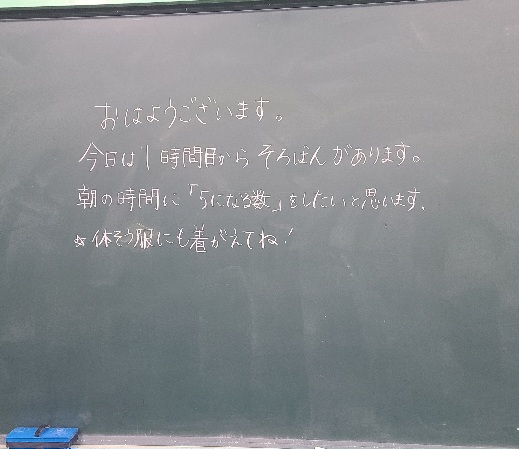 おはようございます。
今日は1時間目からそろばんがあります。
朝の時間に「5になる数」をしたいと思います。
☆体そう服にも着がえてね!